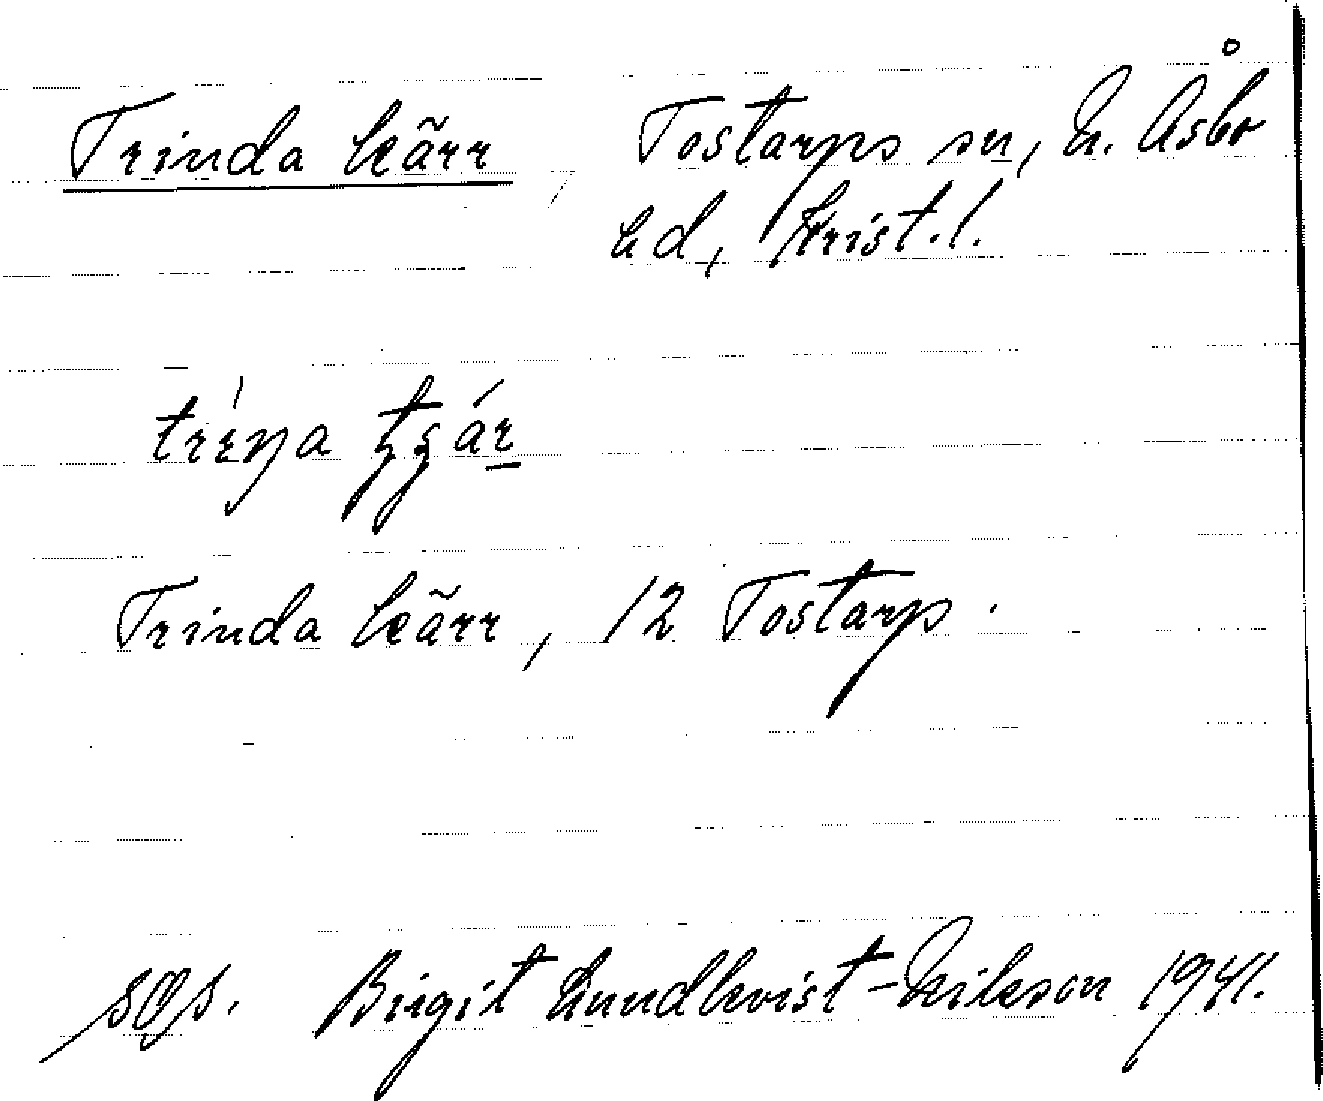 Trinda kärr, Tostarps sn, N. Åsbo
hd, Krist. l.
Trinda kärr, 12 Tostarp.
Birgit Lundkvist-Nilsson 1941.